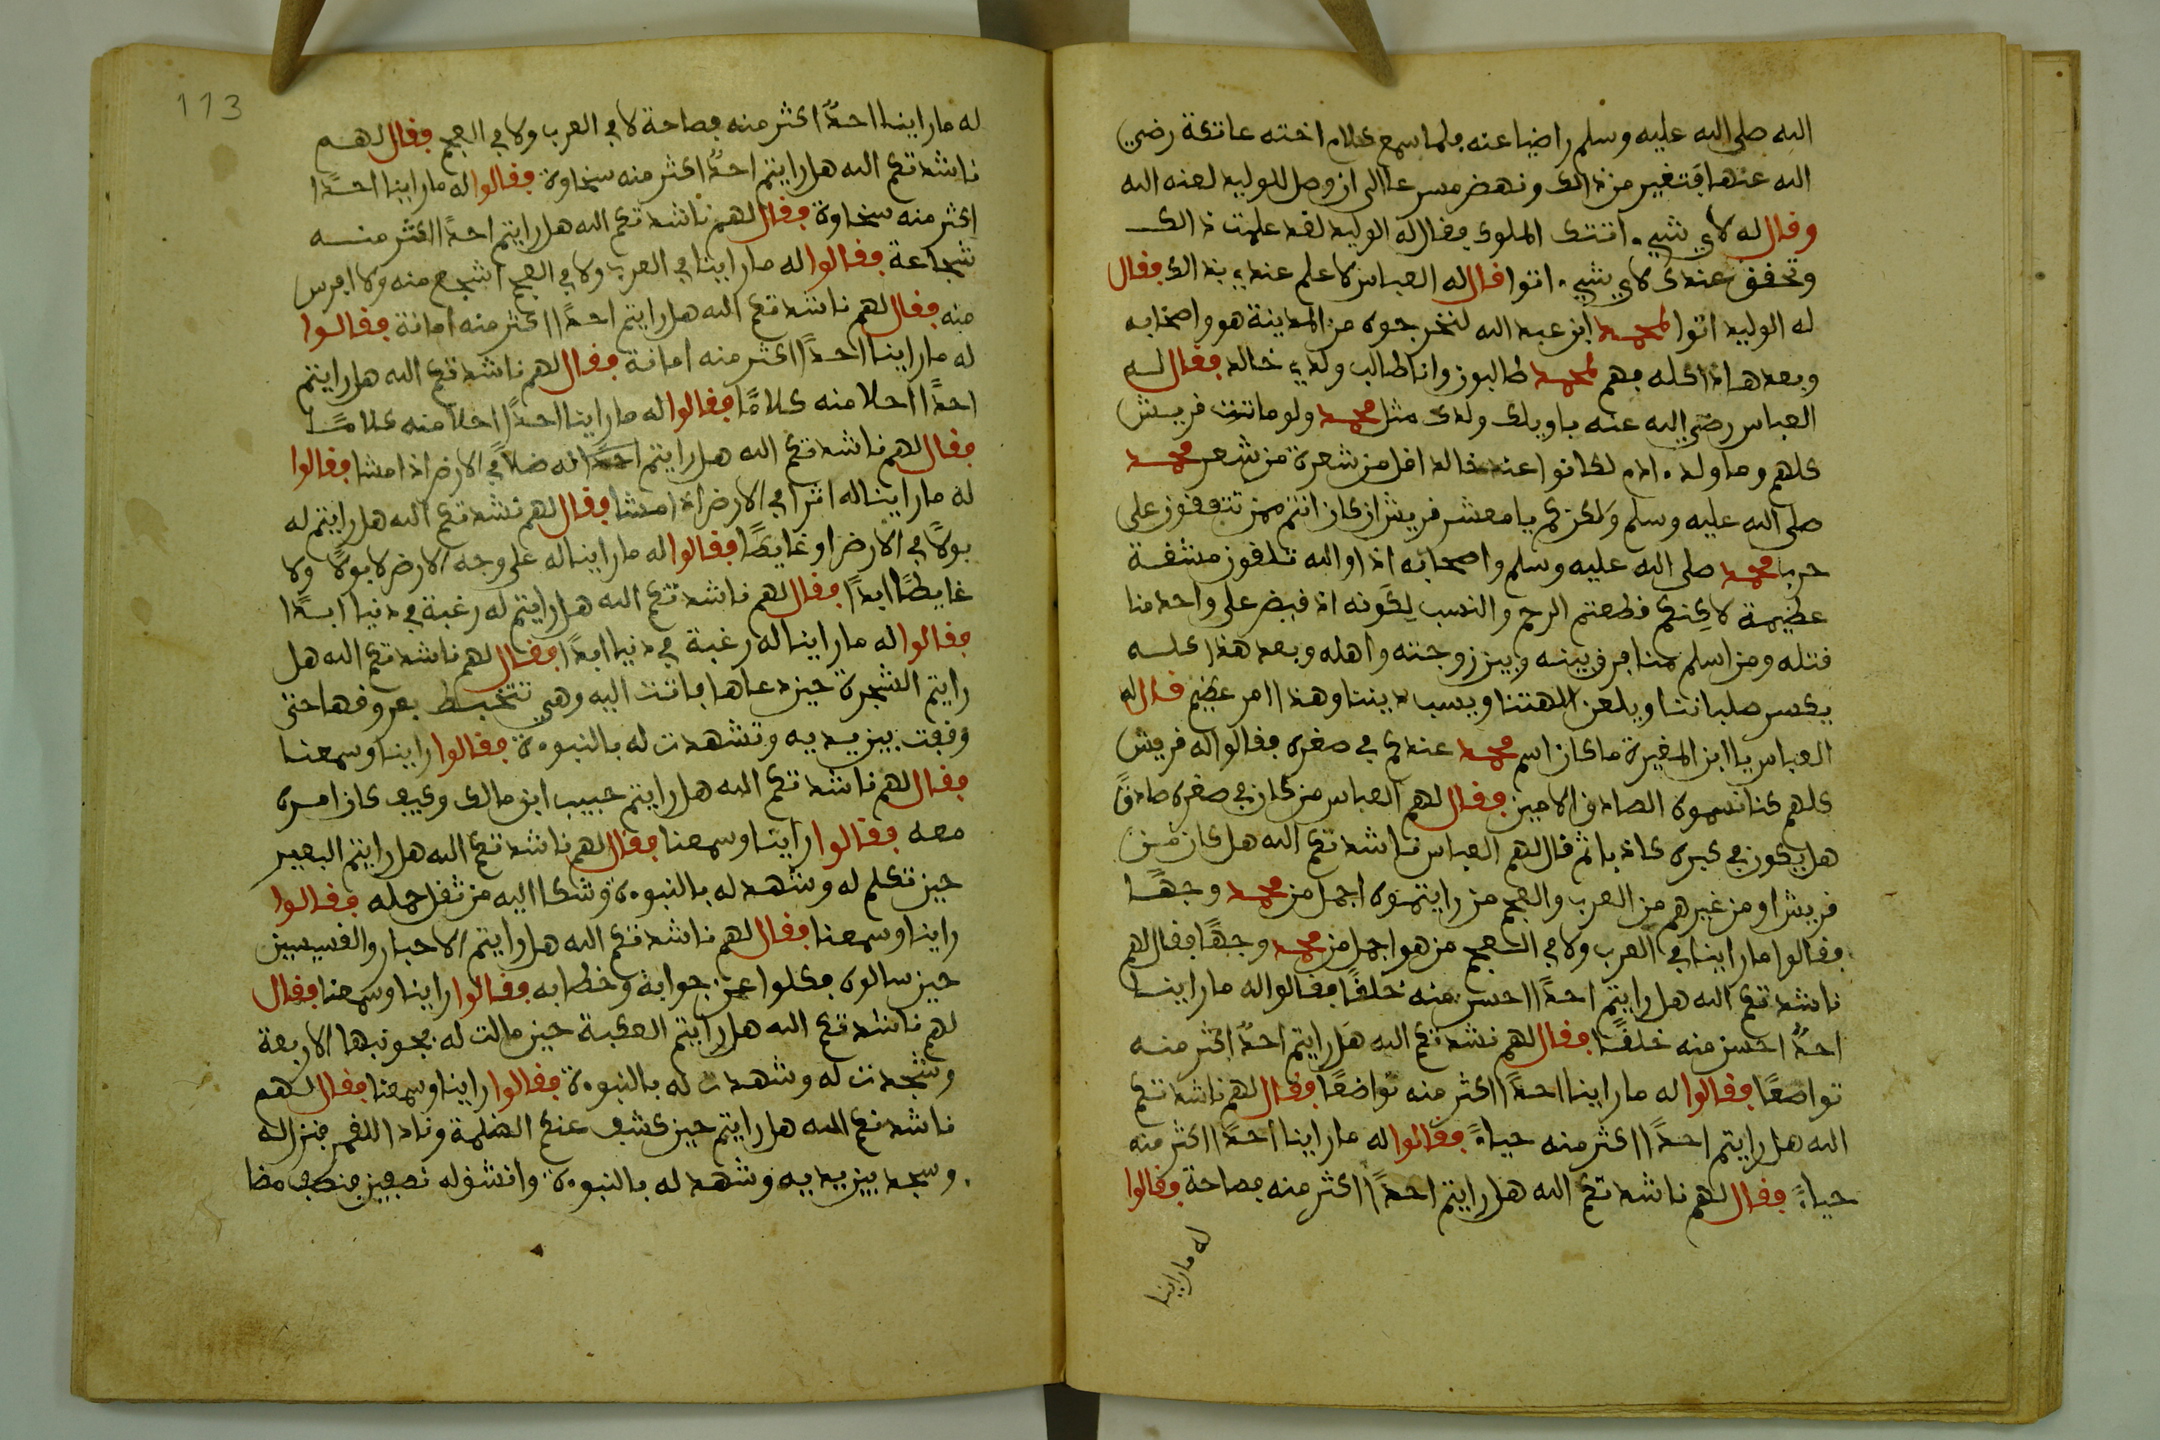 الله صلى الله عليه وسلم راضيا عنه فلما سمع كلام اخته عاتكة رضي
الله عنها فتغير من ذالك ونهض مسرعا الى ان وصل للوليد لعنه الله
وقال له لاي شيء اتتك الملوك فقال له الوليد لقد علمت ذالك
وتحقق عندك لاي شيء اتوا قال له العباس لا علم عندي بذالك فقال
له الوليد اتوا لمحمد ابن عبد الله لنخرجوه من المدينة هو واصحابه
وبعد هاذا كله فهم لمحمد طالبون وانا طالب ولدي خالد فقال له
العباس رضي الله عنه ياويلك ولدك مثل محمد ولو ماتت قريش
كلهم وما ولد ادم لكانوا عند خالد اقل من شعرة من شعر محمد
صلى الله عليه وسلم ولكن كم يا معشر قريش ان كان انتم ممن تتفقون على
حرب محمد صلى الله عليه وسلم واصحابه اذا والله تلقون مشقة
عظيمة لاكنكم قطعتم الرحم والنسب لكونه اذ قبض على واحد منا
قتله ومن اسلم منا فرق بينه وبين زوجته واهله وبعد هذا كله
يكسر صلباننا ويلعن الهتنا ويسب ديننا وهذا امر عظيم قال له
العباس يا ابن المغيرة ما كان اسم محمد عندكم في صغره فقالوا له قريش
كلهم كنا نسموه الصادق الامين فقال لهم العباس من كان في صغره صادقً
هل يكون في كبره كاذبا ثم قال لهم العباس ناشدتكم الله هل كان من
قريش او من غيرهم من العرب والعجم من رايتموه اجمل من محمد وجهًا
فقالوا ما راينا في العرب ولا في العجم من هو اجمل من محمد وجهًا فقال لهم
ناشدتكم الله هل رايتم احدًا احسن منه خلقًا فقالوا له ما راينا
احدٌ احسن منه خلقًا فقال لهم نشدتكم الله هل رايتم احدٌ اكثر منه
تواضعًا فقالوا له ما راينا احدًا اكثر منه تواضعًا فقال لهم ناشدتكم
الله هل رايتم احدًا اكثر منه حياءً فقالوا له ما راينا احدًا اكثر منه
حياءً فقال لهم ناشدتكم الله هل رايتم احدًا اكثر منه فصاحة فقالوا
له ما راينا
113
له ما راينا احدًا اكثر منه فصاحة لا في العرب ولا في العجم فقال لهم
ناشدتكم الله هل رايتم احدٌ اكثر منه سخاوة فقالوا له ما راينا احدًا
اكثر منه سخاوة فقال لهم ناشدتكم الله هل رايتم احدًا اكثر منه
شجاعة فقالوا له ما راينا في العرب ولا في العجم اشجع منه ولا افرس
منه فقال لهم ناشدتكم الله هل رايتم احدًا اكثر منه امانة فقالوا
له ما راينا احدًا اكثر منه امانة فقال لهم ناشدتكم الله هل رايتم
احدًا احلا منه كلامًا فقالوا له ما راينا احدًا احلا منه كلامًا
فقال لهم ناشدتكم الله هل رايتم له ضلا في الارض اذا مشا فقالوا
له ما راينا له اثرا في الارض اذا مشا فقال لهم نشدتكم الله هل رايتم له
بولًا في الارض او غايطًا فقالوا له ما راينا له على وجه الارض لا بولًا ولا
غايطًا ابدًا فقال لهم ناشدتكم الله هل رايتم له رغبة في دنيا ابدًا
فقالوا له ما راينا له رغبة في دنيا ابدًا فقال لهم ناشدتكم الله هل
رايتم الشجرة حين دعاها فاتت اليه وهي تتخبط بعروقها حتى
وقفت بين يديه وتشهدت له بالنبوءة فقالوا راينا وسمعنا
فقال لهم ناشدتكم الله هل رايتم حبيب ابن مالك وكيف كان امره
معه فقالوا راينا وسمعنا فقال لهم ناشدتكم الله هل رايتم البعير
حين تكلم له وشهد له بالنبوءة وشكا اليه من ثقل حمله فقالوا
راينا وسمعنا فقال لهم ناشدتكم الله هل رايتم الاحبار والقسيسين
حين سالوه فكلوا عن جوابه وخطابه فقالوا راينا وسمعنا فقال
لهم ناشدتكم الله هل رايتم الكعبة حين مالت له بجونبها الاربعة
وشجدت له وشهدت له بالنبوءة فقالوا راينا وسمعنا فقال لهم
ناشدتكم الله هل رايتم حين كشف عنكم الضلمة وناد القمر فنزل له
وسجد بين يديه وشهد له بالنبوءة وانشق له نصفين فنصف مضا